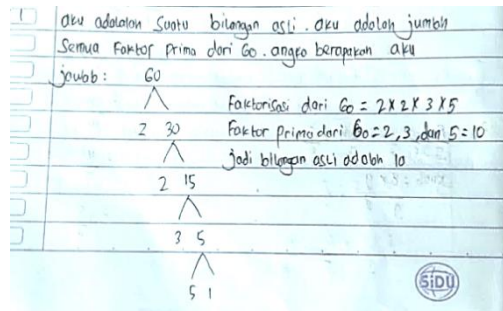 1 aku adalalan suatu bilangan asli. aku adalah jumlah
Semua Faktor Prima dari 60. angka berapakah aku
jawab : 60
Faktorisasi dari 60 = 2 x 2 x 3 x 5
2 30 Faktor prima dari 60 = 2, 3, dan 5 = 10
jadi bilangan asli adalah 10
2 15
3 5
5 1
SiDU